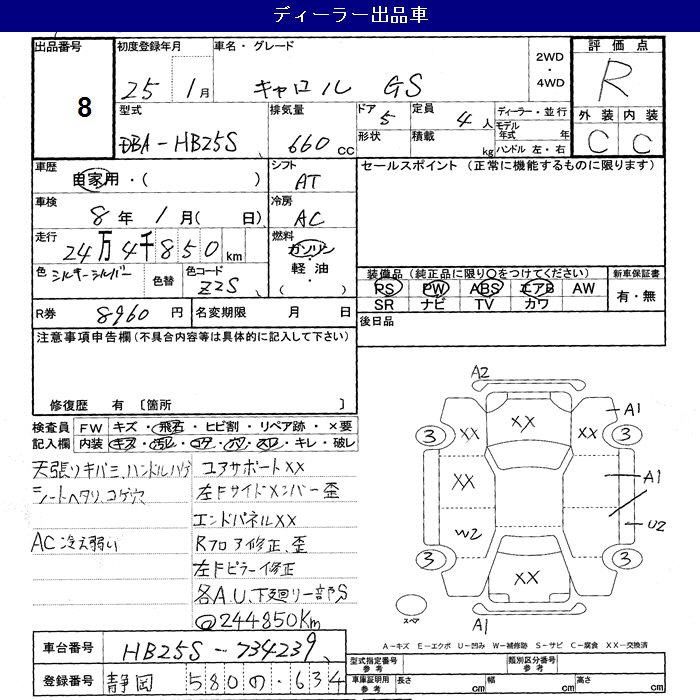 ディーラー出品車
出品番号
8
初度登録年月
25 1月
車名・グレード
キャロル GS
2WD
・
4WD
評価点
R
外装 内装
C C
型式
DBA-HB25S
排気量
660cc
ドア
5
定員
4人
形状
積載
kg
ディーラー・並行
モデル年式 年
ハンドル 左・右
車歴
自家用・( )
シフト
AT
セールスポイント (正常に機能するものに限ります)
車検
8年 1月( 日)
冷房
AC
走行
24万4千850km
燃料
ガソリン
・
軽油
・
( )
色
シルキーシルバー
色替
色コード
ZZS
装備品 (純正品に限り○をつけてください)
PS PW ABS エアB AW
SR ナビ TV カワ
新車保証書
有・無
R券 8960円
名変期限 月 日
後日品
注意事項申告欄(不具合内容等は具体的に記入して下さい)
修復歴 有 〔箇所 〕
検査員記入欄
FW キズ・飛石・ヒビ割・リペア跡・×要
内装 キズ・汚レ・コゲ・穴・スレ・キレ・破レ
天張リキバミ、ハンドルハゲ
シートヘタリ、コゲ穴
AC冷え弱い
コアサポートXX
左Fサイドメンバー歪
エンドパネルXX
Rフロア修正、歪
左Fピラー修正
各A.U、下廻リ一部S
@244850Km
A2
A1
XX
XX
XX
3
3
XX
A1
W2
U2
3
3
XX
A1
スペア
A-キズ E-エクボ U-凹み W-補修跡 S-サビ C-腐食 XX-交換済
車台番号 HB25S-734239
登録番号 静岡 580 の・634
型式指定番号
参考
類別区分番号
参考
車庫証明用
参考
長さ cm
幅 cm
高さ cm